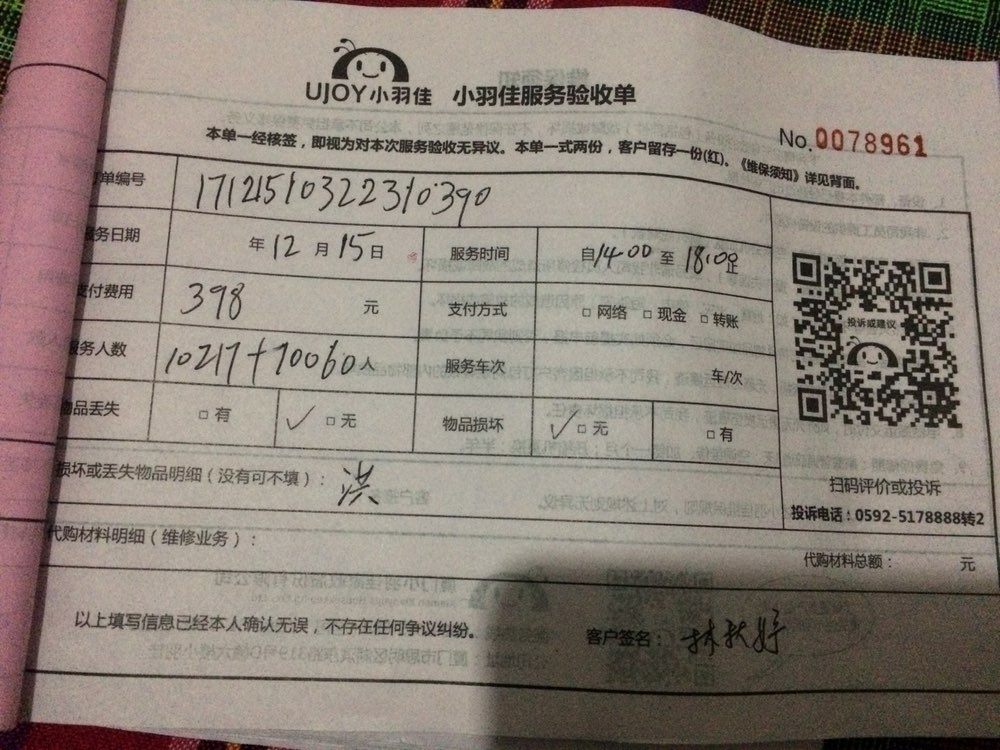 UJOY小羽佳 小羽佳服务验收单
No.0078961
本单一经核签，即视为对本次服务验收无异议。本单一式两份，客户留存一份(红)。《维保须知》详见背面。
单编号 17121510322310390
服务日期 年12月15日 服务时间 自14:00至18:00止
支付费用 398 元 支付方式 □网络 □现金 □转账
服务人数 10217+70060人 服务车次 车/次
物品丢失 □有 ✓□无 物品损坏 ✓□无 □有
投诉或建议
扫码评价或投诉
投诉电话：0592-5178888转2
损坏或丢失物品明细（没有可不填）： 洪
代购材料明细（维修业务）：
代购材料总额： 元
以上填写信息已经本人确认无误，不存在任何争议纠纷。 客户签名：林